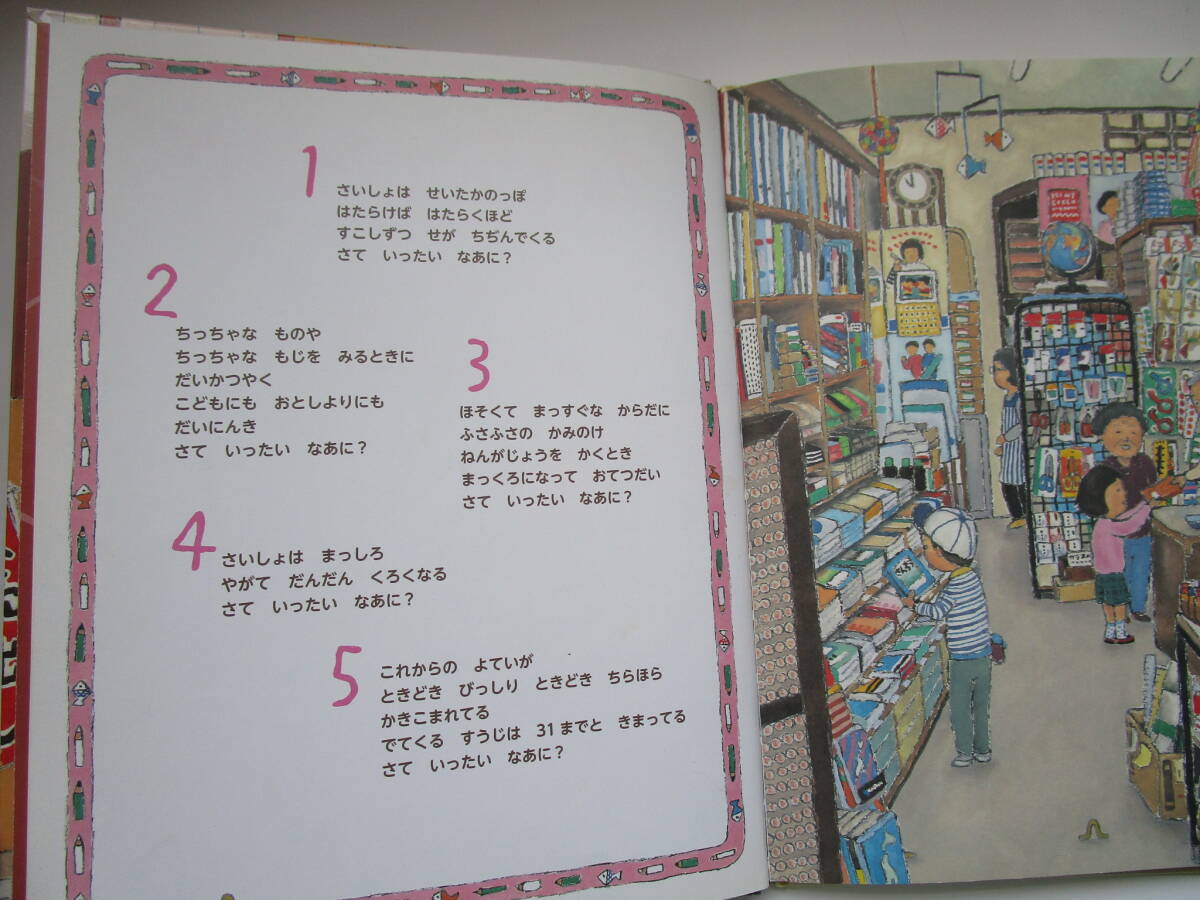 1
さいしょは　せいたかのっぽ
はたらけば　はたらくほど
すこしずつ　せが　ちぢんでくる
さて　いったい　なあに？
2
ちっちゃな　ものや
ちっちゃな　もじを　みるときに
だいかつやく
こどもにも　おとしよりにも
だいにんき
さて　いったい　なあに？
3
ほそくて　まっすぐな　からだに
ふさふさの　かみのけ
ねんがじょうを　かくとき
まっくろになって　おてつだい
さて　いったい　なあに？
4
さいしょは　まっしろ
やがて　だんだん　くろくなる
さて　いったい　なあに？
5
これからの　よていが
ときどき　びっしり　ときどき　ちらほら
かきこまれてる
でてくる　すうじは　31までと　きまってる
さて　いったい　なあに？